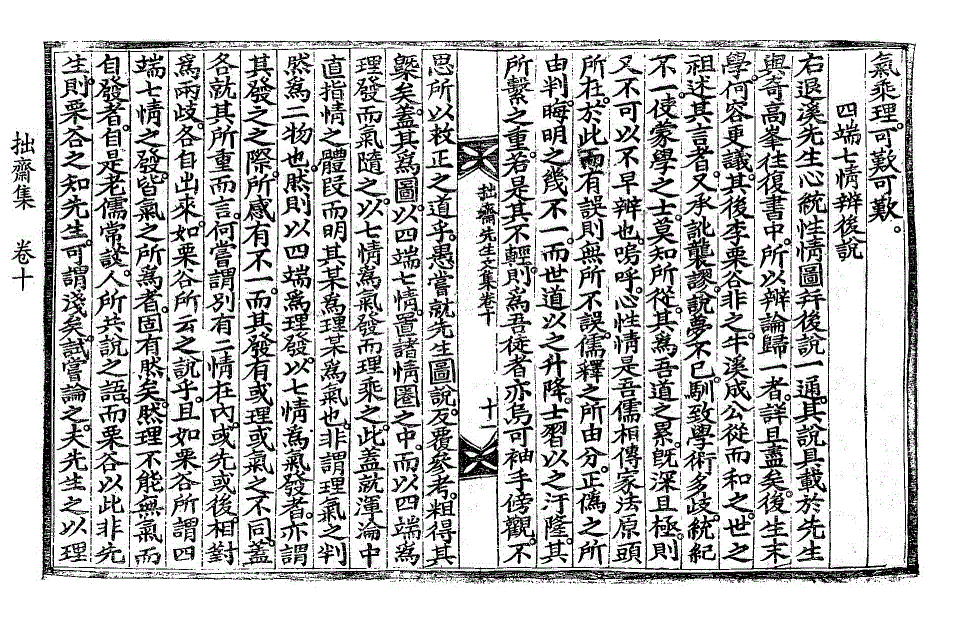 氣乘理。可歎可歎。
四端七情辨後說
右退溪先生心統性情圖幷後說一通。其說且載於先生
與奇高峯往復書中。所以辨論歸一者。詳且盡矣。後生末
學。何容更議。其後李栗谷非之。牛溪成公從而和之。世之
祖述其言者。又承訛襲謬。說夢不已。馴致學術多歧。統紀
不一。使蒙學之士。莫知所從。其爲吾道之累。旣深且極。則
又不可以不早辨也。嗚呼。心性情。是吾儒相傳家法原頭
所在。於此而有誤則無所不誤。儒釋之所由分。正僞之所
由判。晦明之幾不一。而世道以之升降。士習以之汙隆。其
所繫之重。若是其不輕。則爲吾徒者亦烏可袖手傍觀。不
拙齋先生文集卷十
十一
思所以救正之道乎。愚嘗就先生圖說。反覆參考。粗得其
槩矣。蓋其爲圖。以四端七情。置諸情圈之中。而以四端爲
理發而氣隨之。以七情爲氣發而理乘之。此蓋就渾淪中
直指情之體段而明其某爲理某爲氣也。非謂理氣之判
然爲二物也。然則以四端爲理發。以七情爲氣發者。亦謂
其發之之際。所感有不一。而其發有或理或氣之不同。蓋
各就其所重而言。何嘗謂別有二情在內。或先或後。相對
爲兩歧。各自出來。如栗谷所云之說乎。且如栗谷所謂四
端七情之發。皆氣之所爲者。固有然矣。然理不能無氣而
自發者。自是老儒常談。人所共說之語。而栗谷以此非先
生。則栗谷之知先生。可謂淺矣。試嘗論之。夫先生之以理
拙齋集 卷十